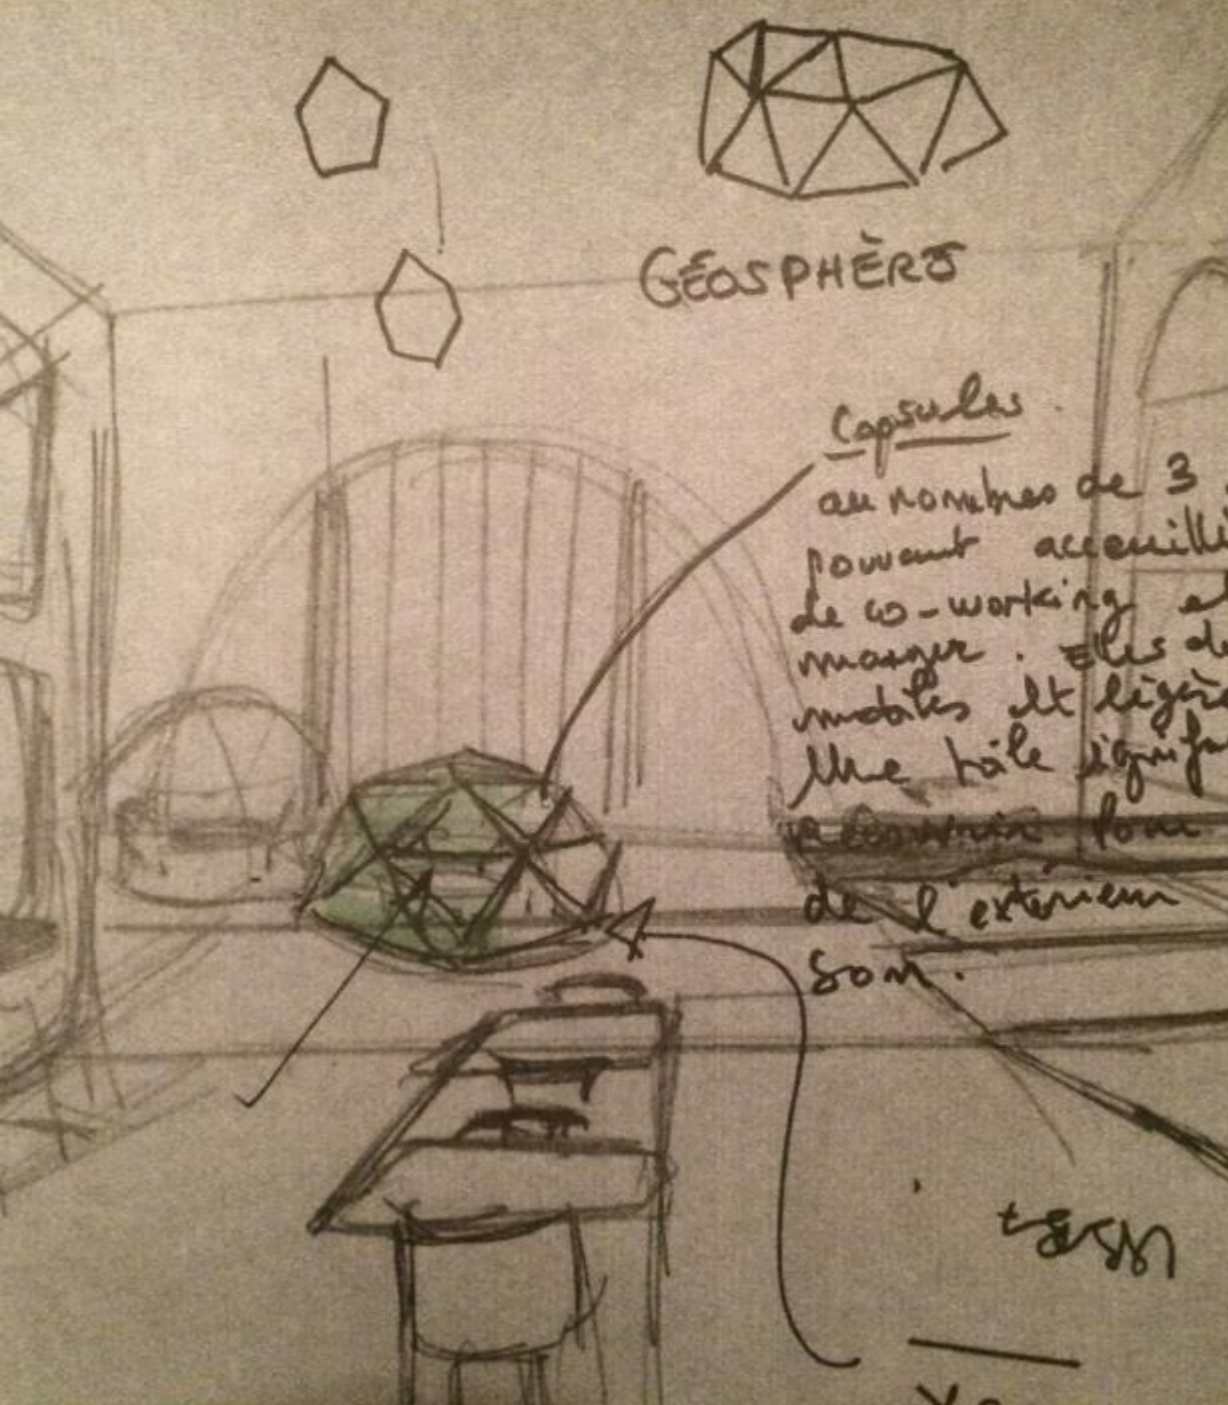 GÉOSPHÈRE
Capsules
au nombres de 3
pouvant accueilli
de co-working et
manger. Elles de
mobiles et légèr
Une toile ignifu
recouvrir pour
de l'extérieur
son.